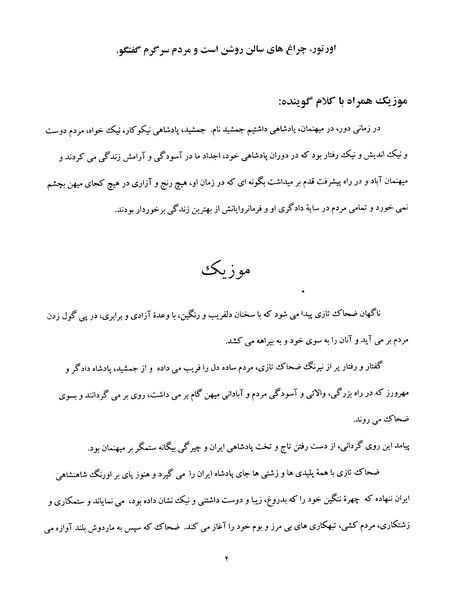 اورتور. چراغ های سالن روشن است و مردم سرگرم گفتگو.
موزیک همراه با کلام گوینده:
در زمانی دور، در میهنمان، پادشاهی داشتیم جمشید نام. جمشید، پادشاهی نیکوکار، نیک خواه، مردم دوست
و نیک اندیش و نیک رفتار بود که در دوران پادشاهی خود، اجداد ما در آسودگی و آرامش زندگی می کردند و
میهنمان آباد و در راه پیشرفت قدم بر میداشت بگونه ای که در زمان او، هیچ رنج و آزاری در هیچ کجای میهن بچشم
نمی خورد و تمامی مردم در سایۀ دادگری او و فرمانروایانش از بهترین زندگی برخوردار بودند.
موزیک
ناگهان ضحاک تازی پیدا می شود که با سخنان دلفریب و رنگین، با وعدۀ آزادی و برابری، در پی گول زدن
مردم بر می آید و آنان را به سوی خود و به بیراهه می کشد.
گفتار و رفتار پر از نیرنگ ضحاک تازی، مردم ساده دل را فریب می داده و از جمشید، پادشاه دادگر و
مهرورز که در راه بزرگی، والائی و آسودگی مردم و آبادانی میهن گام بر می داشت، روی بر می گردانند و بسوی
ضحاک می روند.
پیامد این روی گردانی، از دست رفتن تاج و تخت پادشاهی ایران و چیرگی بیگانه ستمگر بر میهنمان بود.
ضحاک تازی با همۀ پلیدی ها و زشتی ها جای پادشاه ایران را می گیرد و هنوز پای بر اورنگ شاهنشاهی
ایران ننهاده که چهرۀ ننگین خود را که بدروغ، زیبا و دوست داشتنی و نیک نشان داده بود، می نمایاند و ستمکاری و
زشتکاری، مردم کشی، تبهکاری های بی مرز و بوم خود را آغاز می کند. ضحاک که سپس به ماردوش بلند آوازه می
۲